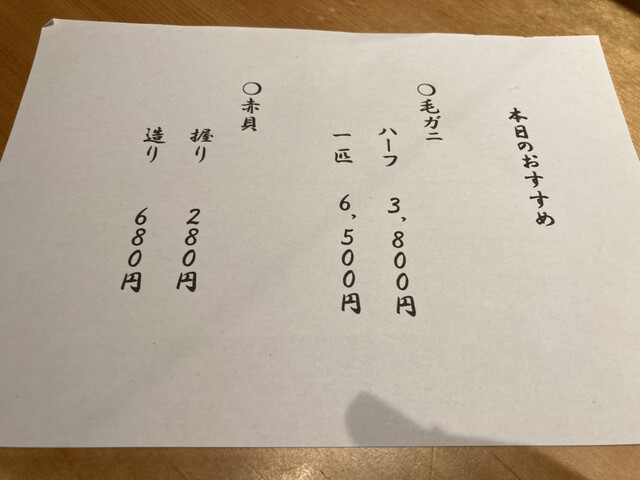 本日のおすすめ
○毛ガニ
ハーフ 3,800円
一匹 6,500円
○赤貝
握り 280円
造り 680円